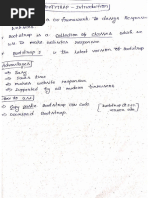 BOOTSTRAP - Introduction
framework to design Responsive
website
→ Bootstrap is a collection of classes which
we to make website responsive
→ Bootstrap 5 is the latest version of Bootstrap
Advantages
→ Easy
→ Saves time
→ Makes website Responsive
→ Supported by all modern browsers
How to use
→ Copy Paste Bootstrap CDN Code
→ Download Bootstrap